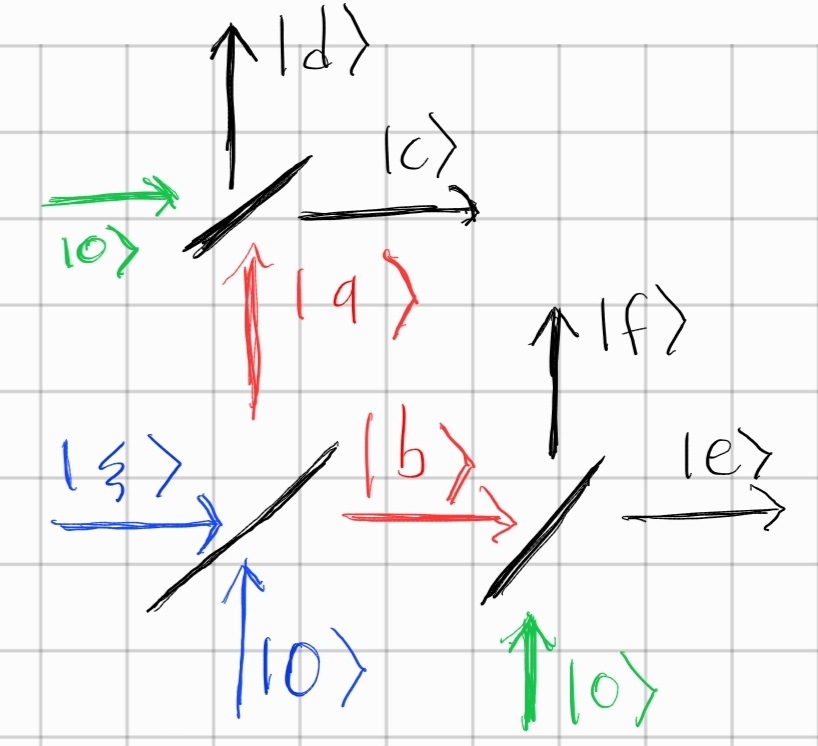 |d⟩
|c⟩
|0⟩
|a⟩
|f⟩
|ξ⟩
|b⟩
|e⟩
|0⟩
|0⟩